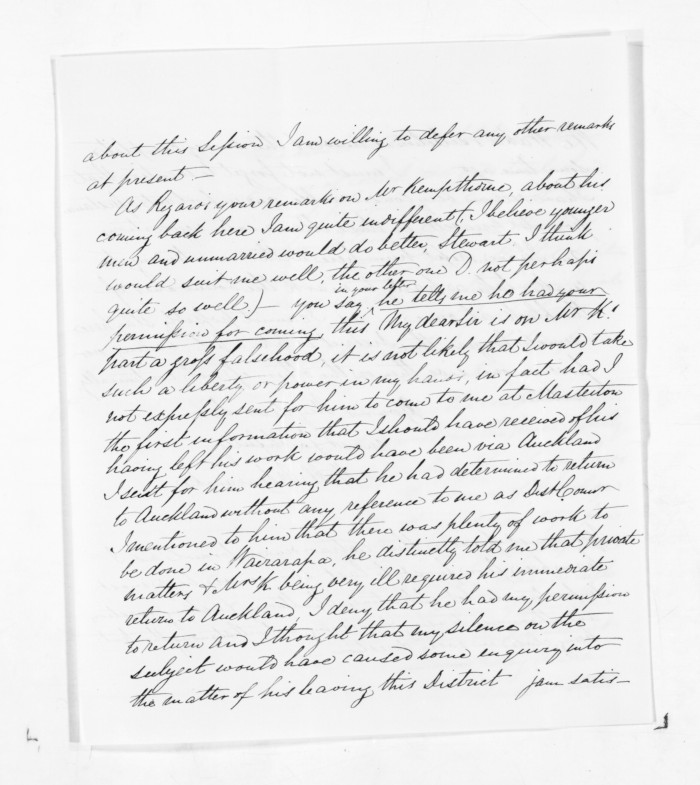 about this Session I am willing to defer any other remarks
at present —
As Regards your remarks on Mr Kempthorne, about his
coming back here I am quite indifferent (, I believe younger
men and unmarried would do better, Stewart I think
would suit me well, the other one D. not perhaps
quite so well.) — you say in your letter he tells me he had your
permission for coming, this My dear Sir is on Mr K's
part a gross falsehood, it is not likely that I would take
such a liberty, or power in my hands, in fact had I
not expressly sent for him to come to me at Masterton
the first information that I should have received of his
having left his work would have been via Auckland
I sent for him hearing that he had determined to return
to Auckland without any reference to me as Dist Comr
I mentioned to him that there was plenty of work to
be done in Wairarapa, he distinctly told me that private
matters & Mrs K. being very ill required his immediate
return to Auckland, I deny that he had my permission
to return and I thought that my silence on the
subject would have caused some enquiry into
the matter of his leaving this District jam satis —